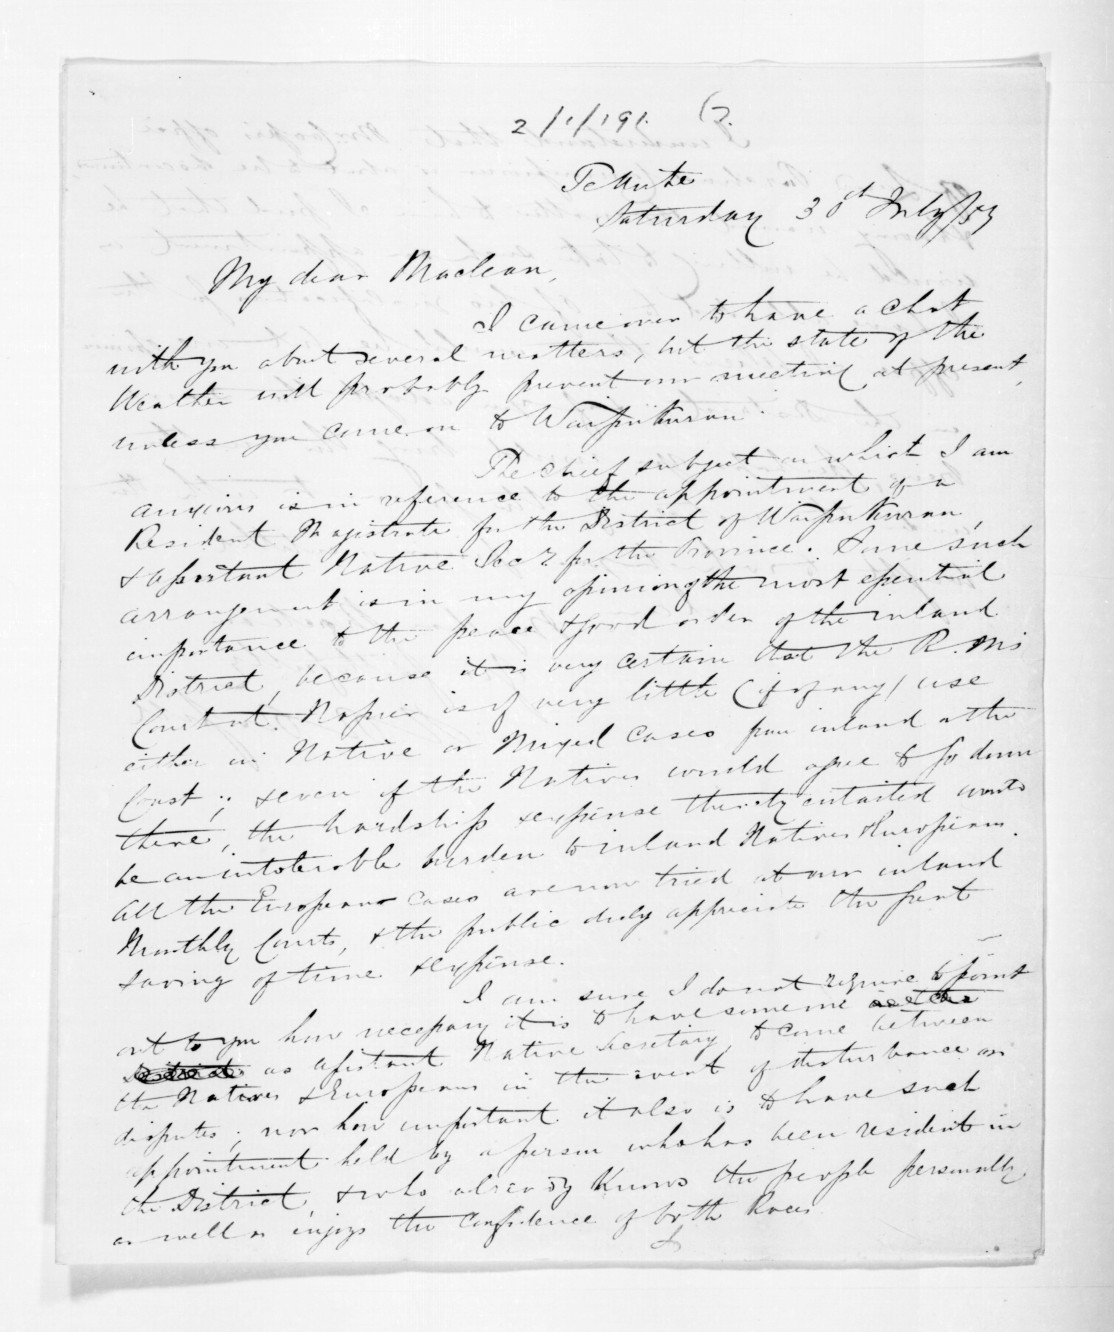 2/1/191.
Te Aute
Saturday 30th July/59
My dear Maclean,
I came over to have a chat
with you about several matters, but the state of the
Weather will probably prevent our meeting at present,
unless you come on to Waipukurau.
The chief subject on which I am
anxious is in reference to the appointment of a
Resident Magistrate for the District of Waipukurau,
& assistant Native Secy for the Province. Some such
arrangement is in my opinion of the most essential
importance to the peace & good order of the inland
District, because it is very certain that the R. Ms
Court at Napier is of very little (if of any) use
either in Native or Mixed cases from inland or the
Coast; & even if the Natives would agree to go down
there, the hardship & expense thereby entailed would
be an intolerable burden to inland Natives & Europeans.
All the European cases are now tried at our inland
Monthly Courts, & the public duly appreciate the great
saving of time & expense.
I am sure I do not require to point
out to you how necessary it is to have someone
as assistant Native Secretary, to come between
the Natives & Europeans in the event of disturbance or
disputes; nor how important it also is to have such
appointment held by a person who has been resident in
the District, & who already knows the people personally
as well as enjoys the confidence of both Races.